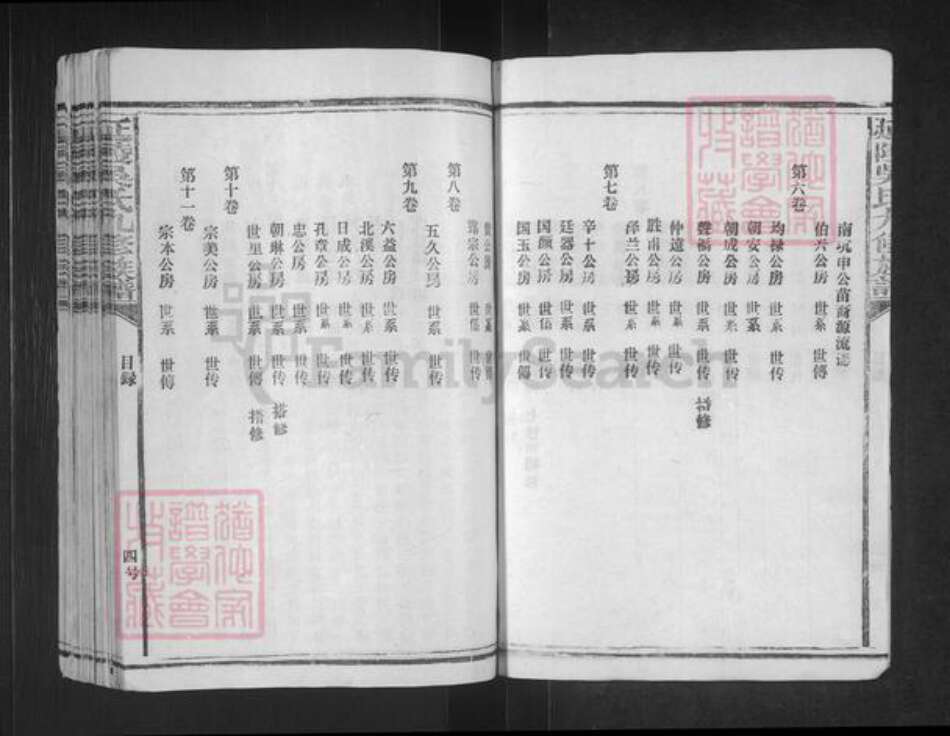 延陵吴氏九修族譜
第六卷
伯兴公房 世系 世傳
均禄公房 世系 世传
朝安公房 世系
朝成公房 世系 世传
世系 世传 搭修
仲遠公房 世系 世传
胜甫公房 世系 世传
泽兰公房 世系 世传
第七卷
辛十公房 世系 世传
廷器公房 世系 世传
国颜公房 世系 世传
国玉公房 世系 世傳
第八卷
世系 世传
宗公房 世系 世传
五久公房 世系 世传
第九卷
六益公房 世系 世传
北溪公房 世系 世传
日成公房 世系 世传
孔章公房 世系 世传
忠公房 世系 世传
朝琳公房 世系 世传 搭修
世里公房 世系 世傳 搭修
第十卷
宗美公房 世系 世传
第十一卷
宗本公房 世系 世傳
延陵吴氏九修族譜
目録
四号
FamilySearch
猶他家譜學會收藏
猶他家譜學會收藏